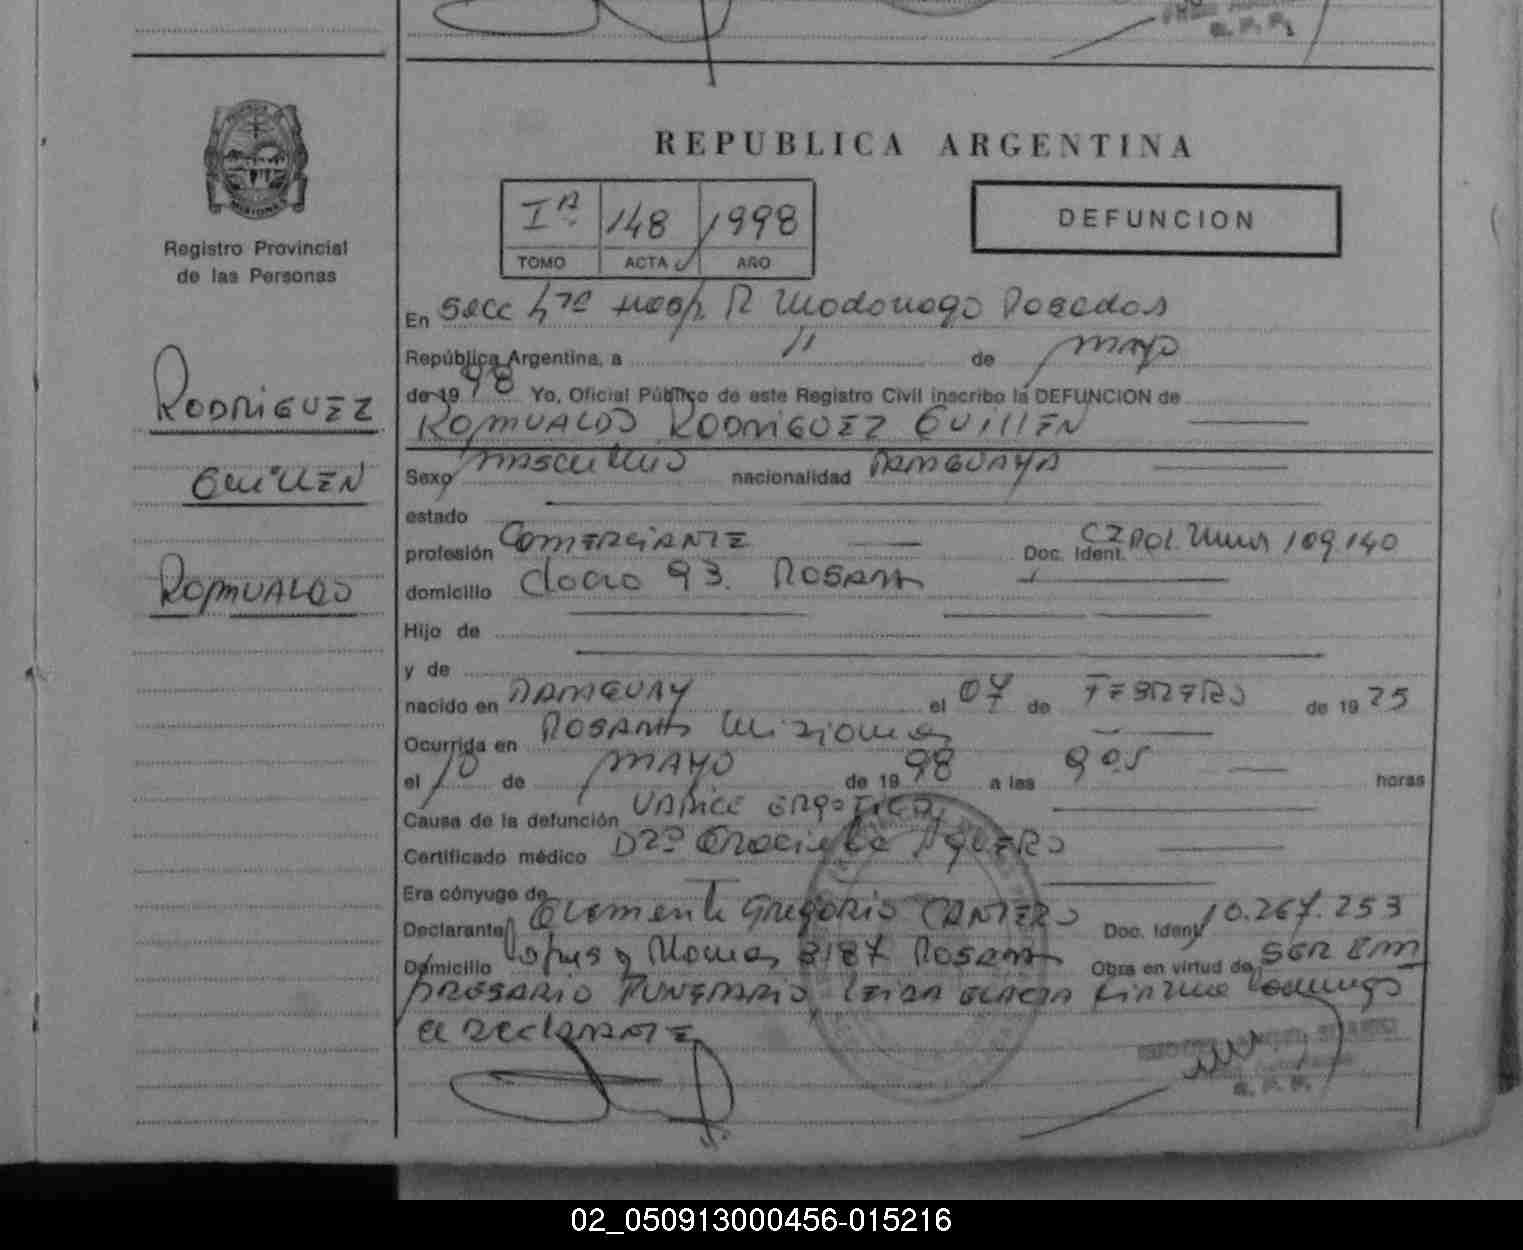 REPUBLICA ARGENTINA
MISIONES
Registro Provincial
de las Personas
Iº 148 1998
TOMO ACTA AÑO
DEFUNCION
RODRIGUEZ
GUILLEN
ROMUALDO
En Secc Hosp. R Madariaga Posadas
República Argentina, a 11 de mayo
de 19 98 Yo, Oficial Público de este Registro Civil inscribo la DEFUNCION de
ROMUALDO RODRIGUEZ GUILLEN
Sexo masculino nacionalidad PARAGUAYA
estado
profesión COMERCIANTE Doc. Ident. CI Pol. Mnes 109.140
domicilio 93. POSADAS
Hijo de
y de
nacido en PARAGUAY el 07 de FEBRERO de 19 25
Ocurrida en POSADAS Misiones
el 10 de MAYO de 19 98 a las 9 05 horas
Causa de la defunción VARICE
Certificado médico Dra Graciela AGUERO
Era cónyuge de
Declarante Clemente Gregorio CANTERO Doc. Ident 10.267.253
Domicilio 3187 POSADAS Obra en virtud de SER EM
PRESARIO FUNERARIO, LEIDA EL ACTA Firma Conmigo
el DECLARANTE
02_050913000456-015216